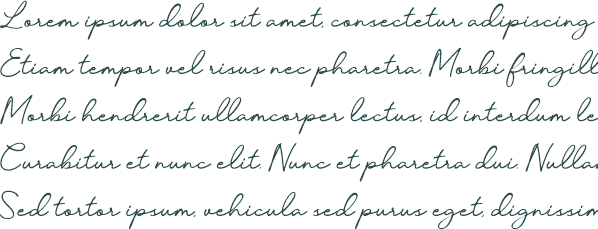 Lorem ipsum dolor sit amet, consectetur adipiscing
Etiam tempor vel risus nec pharetra. Morbi fringill
Morbi hendrerit ullamcorper lectus, id interdum le
Curabitur et nunc elit. Nunc et pharetra dui. Nulla
Sed tortor ipsum, vehicula sed purus eget, dignissim